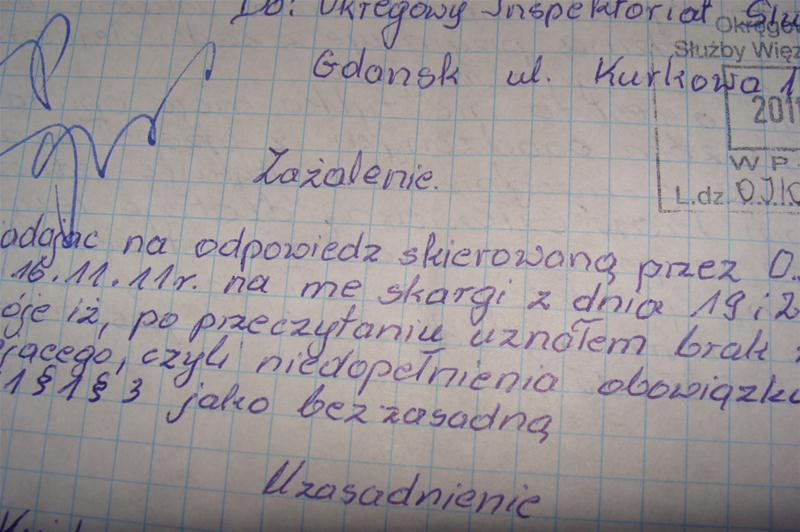 Do: Okręgowy Inspektoriat Służ
Okręgow
Służby Więz
Gdańsk ul. Kurkowa 1
2011
W P
L.dz. O.I.K
Zażalenie.
adając na odpowiedz skierowaną przez O.
16.11.11r. na me skargi z dnia 19 i 2
óje iż, po przeczytaniu uznałem brak
jącego, czyli niedopełnienia obowiązku
1 § 1 § 3 jako bezzasadną
Uzasadnienie